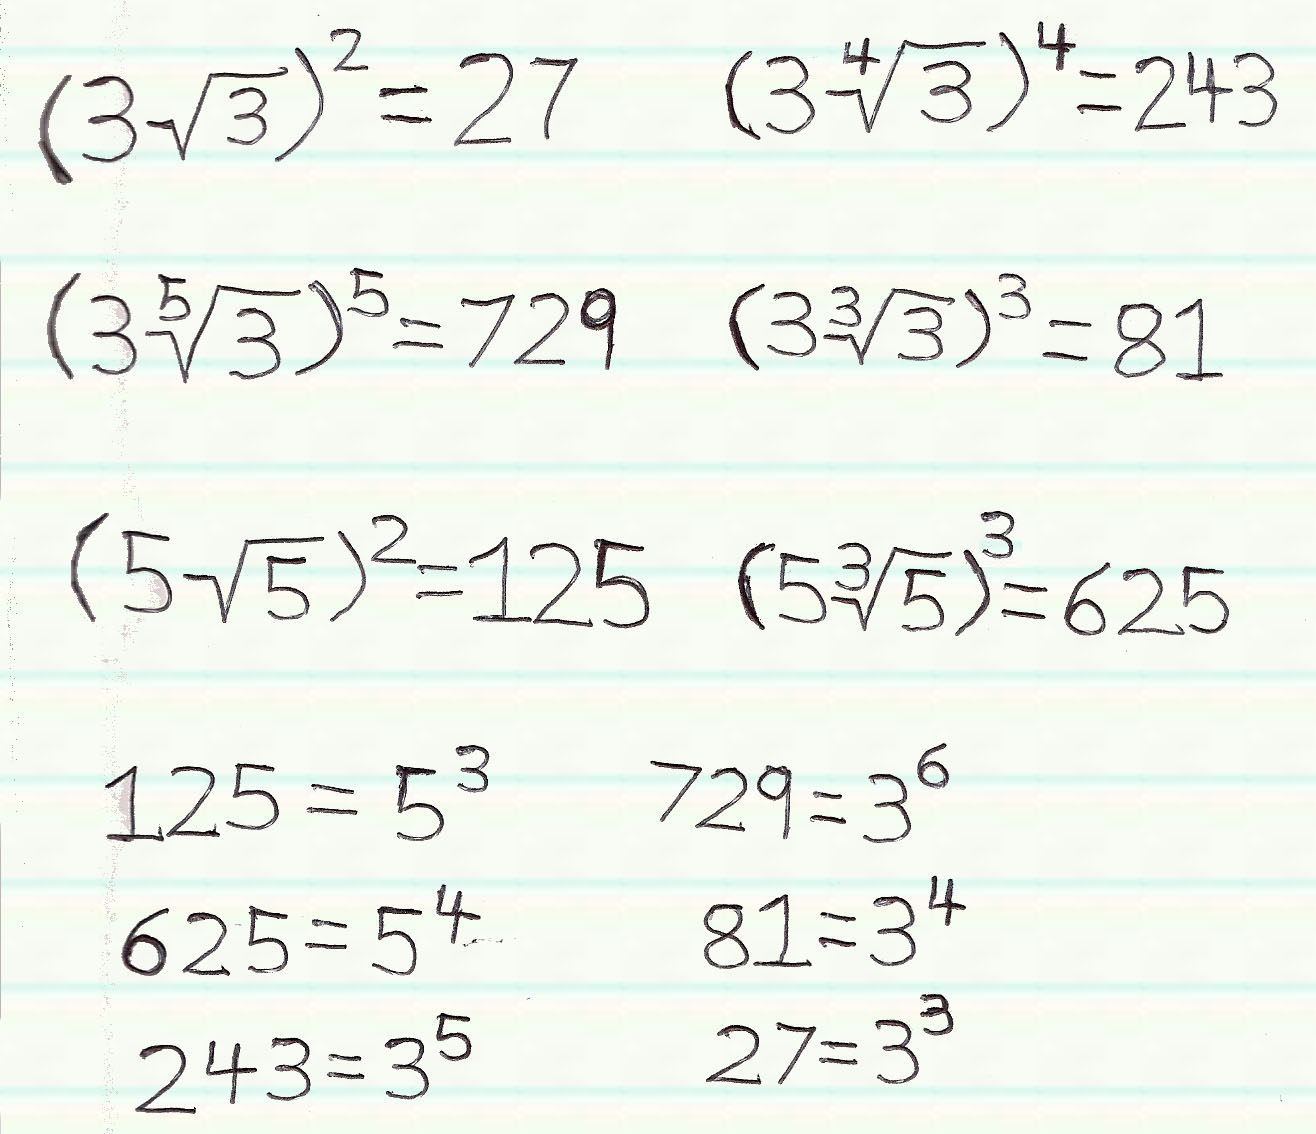 (3√3)² = 27 (3∜3)⁴ = 243
(3⁵√3)⁵ = 729 (3∛3)³ = 81
(5√5)² = 125 (5∛5)³ = 625
125 = 5³ 729 = 3⁶
625 = 5⁴ 81 = 3⁴
243 = 3⁵ 27 = 3³